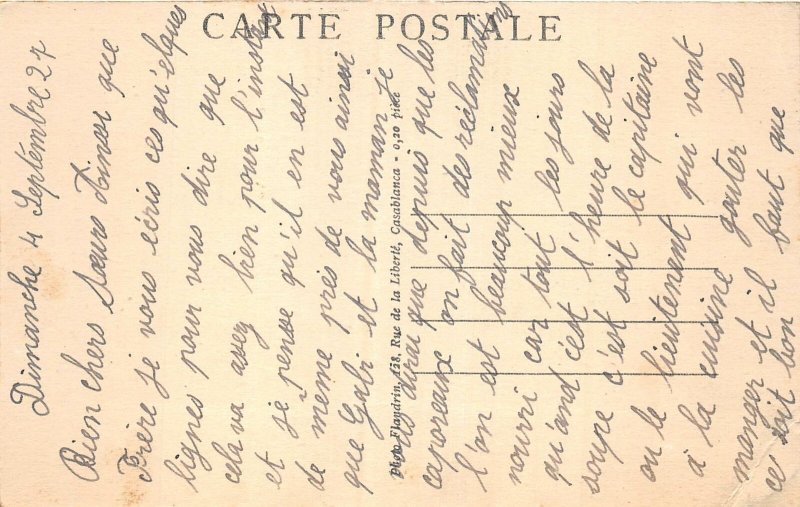 CARTE POSTALE
Dimanche 4 Septembre 27
Bien chers sœurs Ainsi que
Frère je vous écris ces qu'elques
lignes pour vous dire que
cela va assez bien pour l'instant
et je pense qu'il en est
de meme près de vous ainsi
que Gabi et la maman je
vous dirai que depuis que les
caporeaux on fait des réclamations
l'on est beaucoup mieux
nourri car tout les jours
qu'and c'est l'heure de la
soupe c'est soit le capitaine
ou le lieutenant qui vont
à la cuisine gouter les
manger et il faut que
ce soit bon
Photo Flandrin, 128, Rue de la Liberté, Casablanca - 0,20 pièce